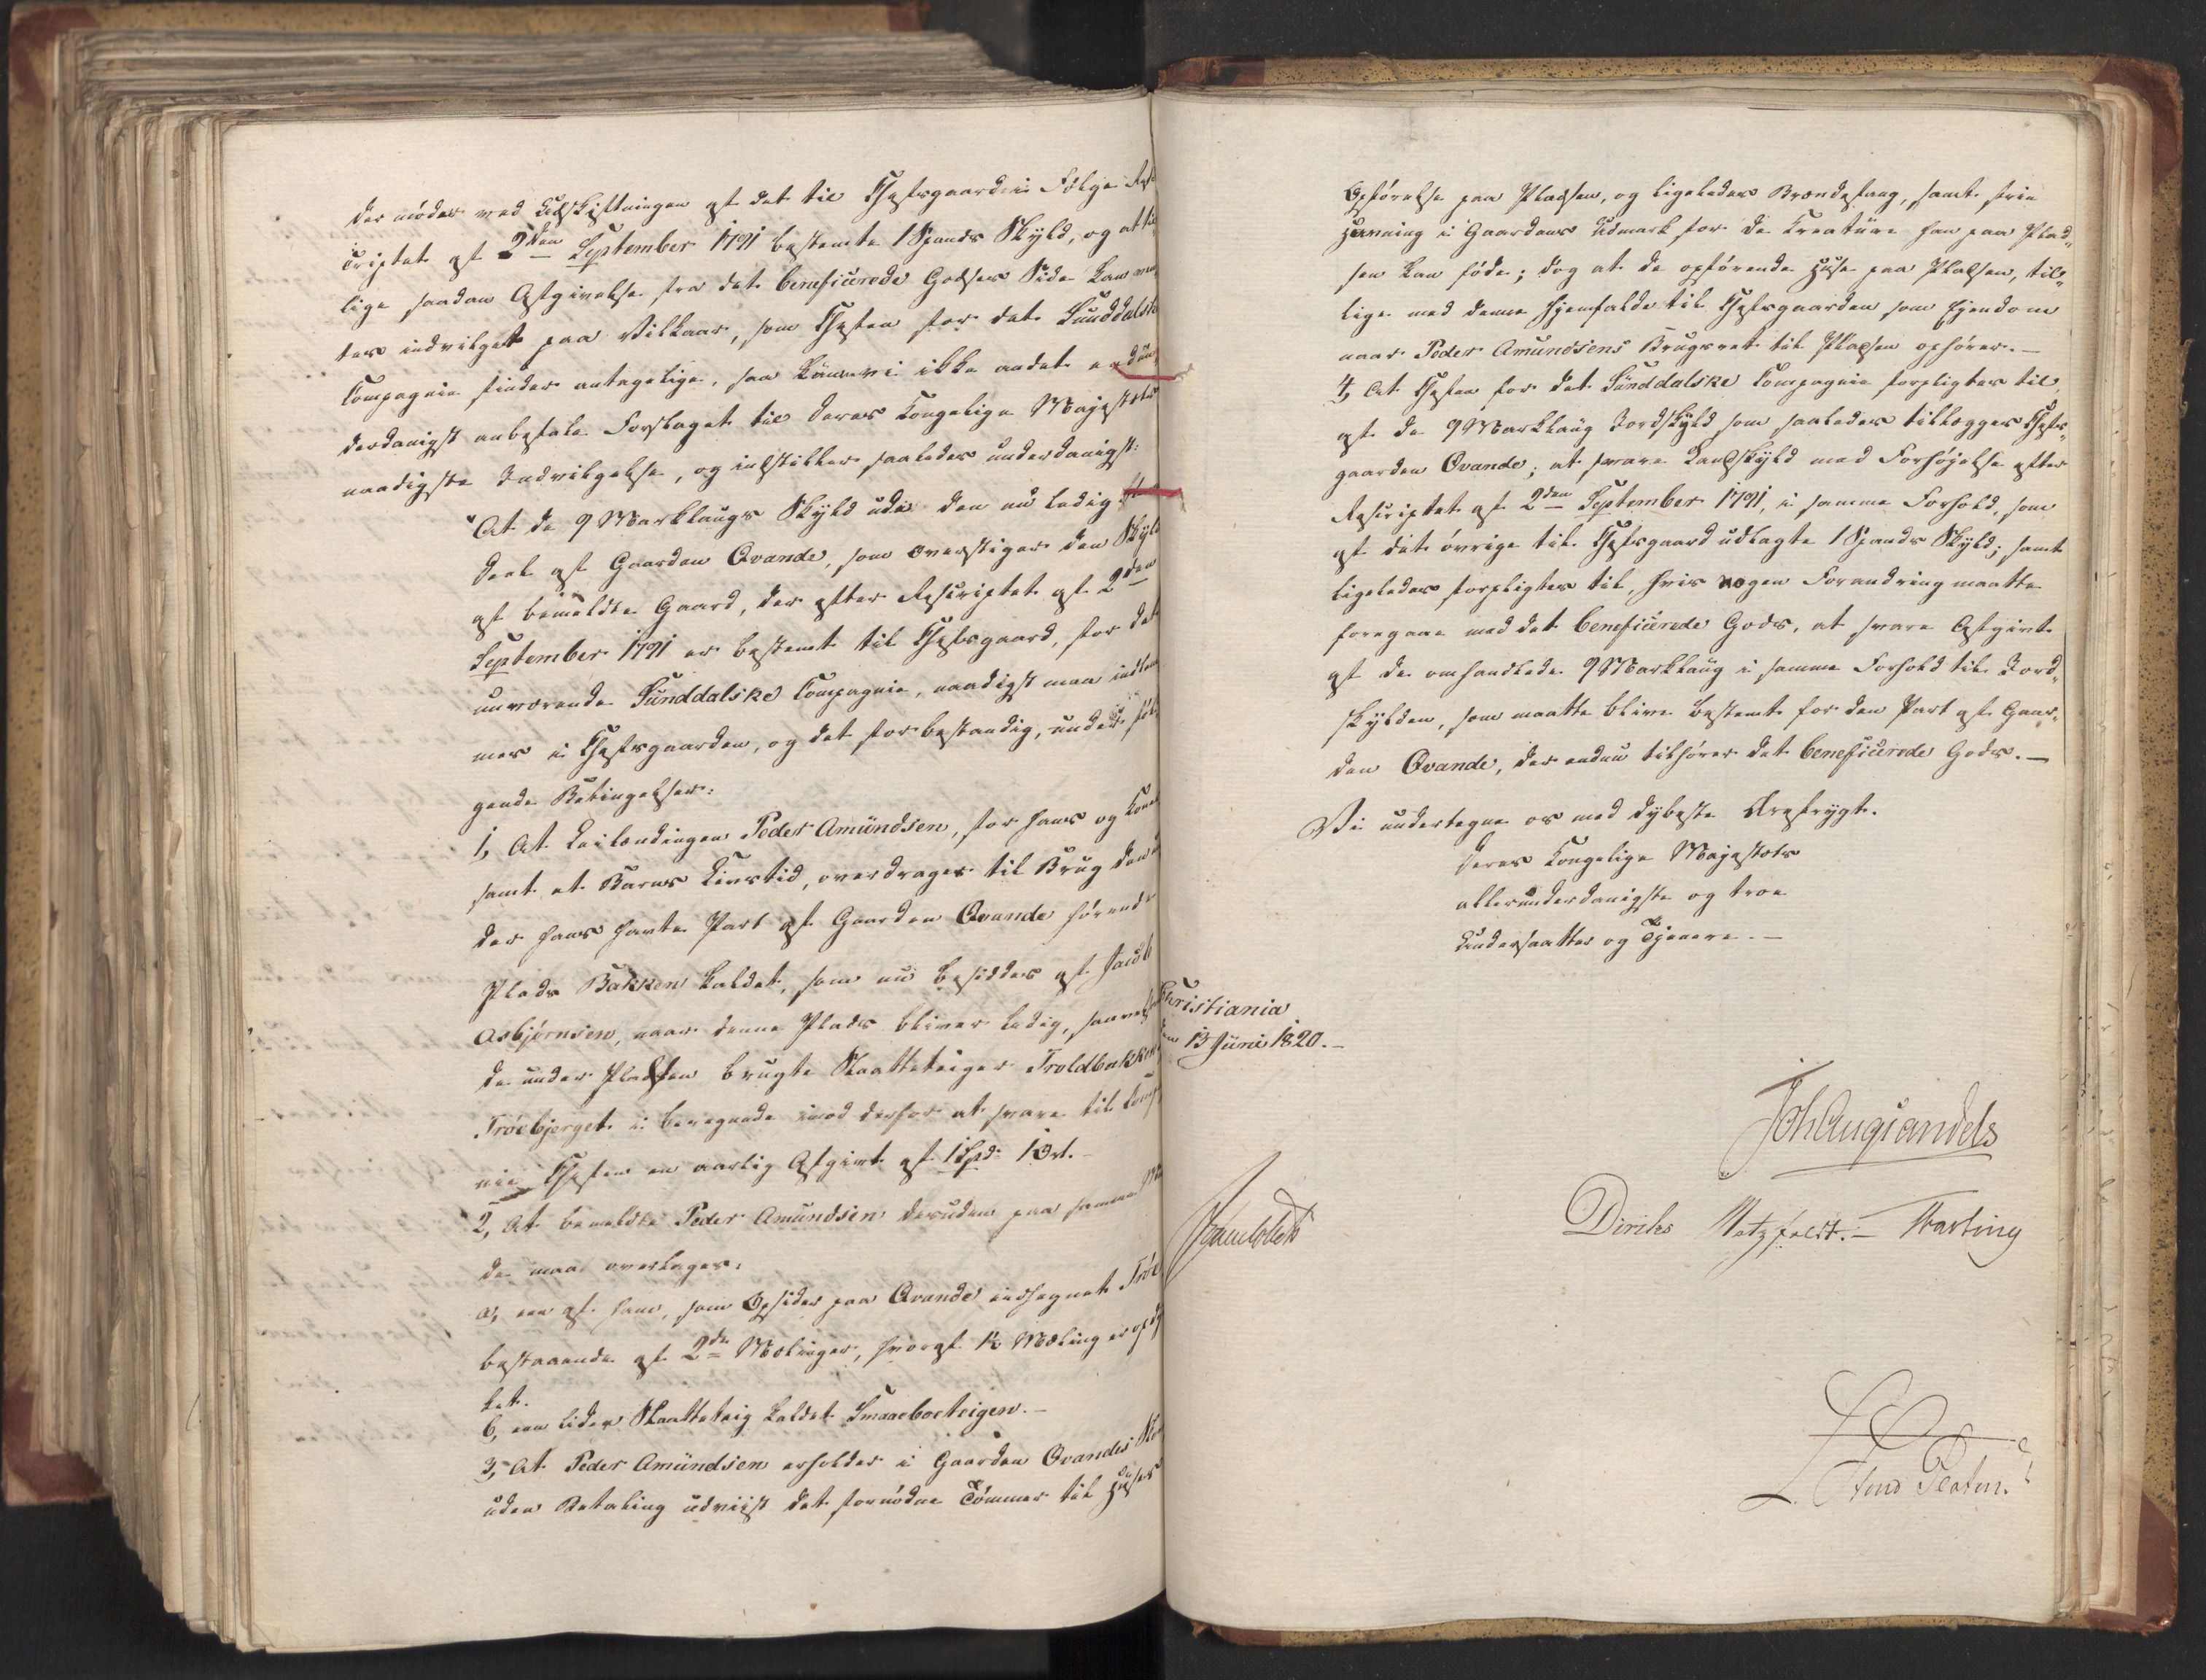 der møder ved Udskiftningen af det til Chefsgaard i Følge Re-
criptet af 2den September 1791 bestemte 1 Spands Skyld, og at
lige saadan Afgivelse fra det beneficerede Godses Side kan
ter indvilget paa Vilkaar, som Chefen for det Sunddalske
Compagnie finder antagelige, saa kunne vi ikke andet end un-
derdanigst anbefale Forslaget til Deres Kongelige Majestæts
naadigste Indvilgelse, og indstiller saaledes underdanigst:
"At de 9 Marklaugs Skyld udi den nu ledig
Deel af Gaarden Qvande, som overstiger den Skyld
af bemeldte Gaard, der efter Rescriptet af 2den
September 1791 er bestemt til Chefsgaard, for det
nuværende Sunddalske Compagnie, naadigst maa indlem-
mes i Chefsgaarden, og det for bestandig, under føl-
gende Betingelser:
1, At Leilændingen Peder Amundsen, for hans og Kones
samt et Barns Livstid, overdrages til Brug den
der hans havte Part af Gaarden Qvande hørende
Plads Bakken kaldet, som nu besiddes af Jacob
Asbjørnsen, naar denne Plads bliver ledig, saavelsom
de under Pladsen brugte Slaatteteiger Troldbakken
Trøebjerget i beregnede imod derfor at svare til Compag-
nie Chefen en aarlig Afgivt af 1 Spd. 1 Ort.
2, At bemeldte Peder Amundsen desuden paa samme Maa-
de maa overtages:
a, een af ham, som Opsidder paa Qvande indhegnet Trøe
bestaaende af 2de Mælinger, hvoraf 1½ Mæling er opdyr-
ket.
b, een liden Slaatteteig kaldet Smaaeboeteigen.-
3, At Peder Amundsen erholder i Gaarden Qvandes Skov
uden Betaling udviist det fornødne Tømmer til Huses
Opførelse paa Pladsen, og ligeledes Brændefang, samt frie
Havning i Gaardens Udmark for de Kreature han paa Plad-
sen kan føde; dog at de opførende Huse paa Pladsen, til-
lige med denne hjemfalde til Chefsgaarden som Ejendom
naar Peder Amundsens Brugsret til Pladsen ophører.-
4, At Chefen for det Sunddalske Compagnie forpligtes til
af de 9 Marklaug Jordskyld som saaledes tillægges Chefs-
gaarden Qvande; at svare Landskyld med Forhøjelse efter
Rescriptet af 2den September 1791, i samme Forhold, som
af det øvrige til Chefsgaard udlagte 1 Spands Skyld; samt
ligeledes forpligtes til, hvis nogen Forandring maatte
foregaae med det beneficerede Gods, at svare Afgivt
af de omhandlede 9 Marklaug i samme Forhold til Jord-
skylden, som maatte blive bestemt for den Part af Gaar-
den Qvande, der endnu tilhører det beneficerede Gods.-
Vi undertegne os med dybeste Ærefrygt.
Deres Kongelige Majestæts
allerunderdanigste og troe
Undersaatter og Tjenere.-
Christiania
den 13 Juni 1820.-
Joh Aug Sandels
Diriks Motzfeldt.- Krefting